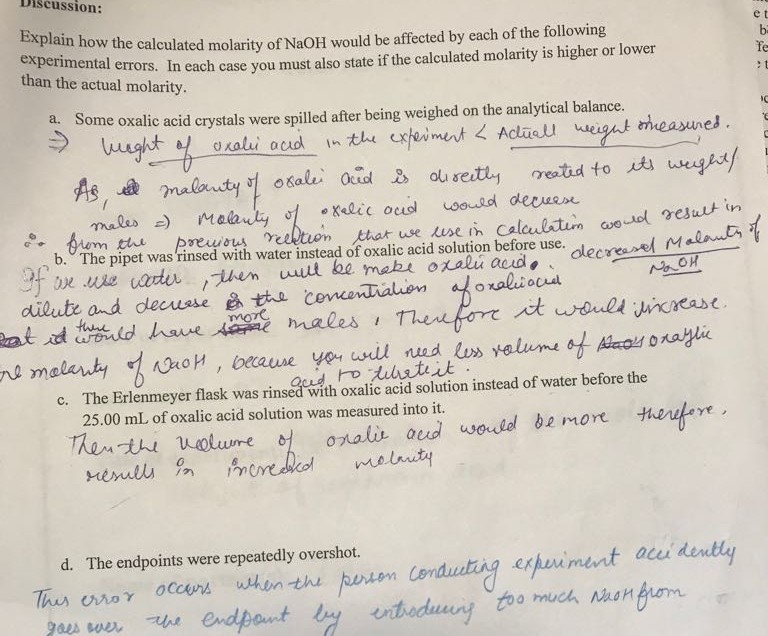 Discussion:
Explain how the calculated molarity of NaOH would be affected by each of the following
experimental errors. In each case you must also state if the calculated molarity is higher or lower
than the actual molarity.
a. Some oxalic acid crystals were spilled after being weighed on the analytical balance.
⇒ weight of oxalic acid in the experiment < Actuall weight measured.
As, molarity of oxalic acid is directly reated to its weight/
males ⇒ Molarity of oxalic acid would decrease
∴ from the previous relation that we use in calculation would result in
decreased Molarity of
NaOH
b. The pipet was rinsed with water instead of oxalic acid solution before use.
If we use water, then will be make oxalic acid.
dilute and decrease the concentration of oxalic acid
that it would have more males, Therefore it would increase.
the molarity of NaOH, because you will need less volume of oxaylic
acid to titrate it.
c. The Erlenmeyer flask was rinsed with oxalic acid solution instead of water before the
25.00 mL of oxalic acid solution was measured into it.
Then the volume of oxalic acid would be more therefore,
results in increased molarity
d. The endpoints were repeatedly overshot.
This error occurs when the person conducting experiment accidently
goes over the endpoint by introducing too much NaOH from